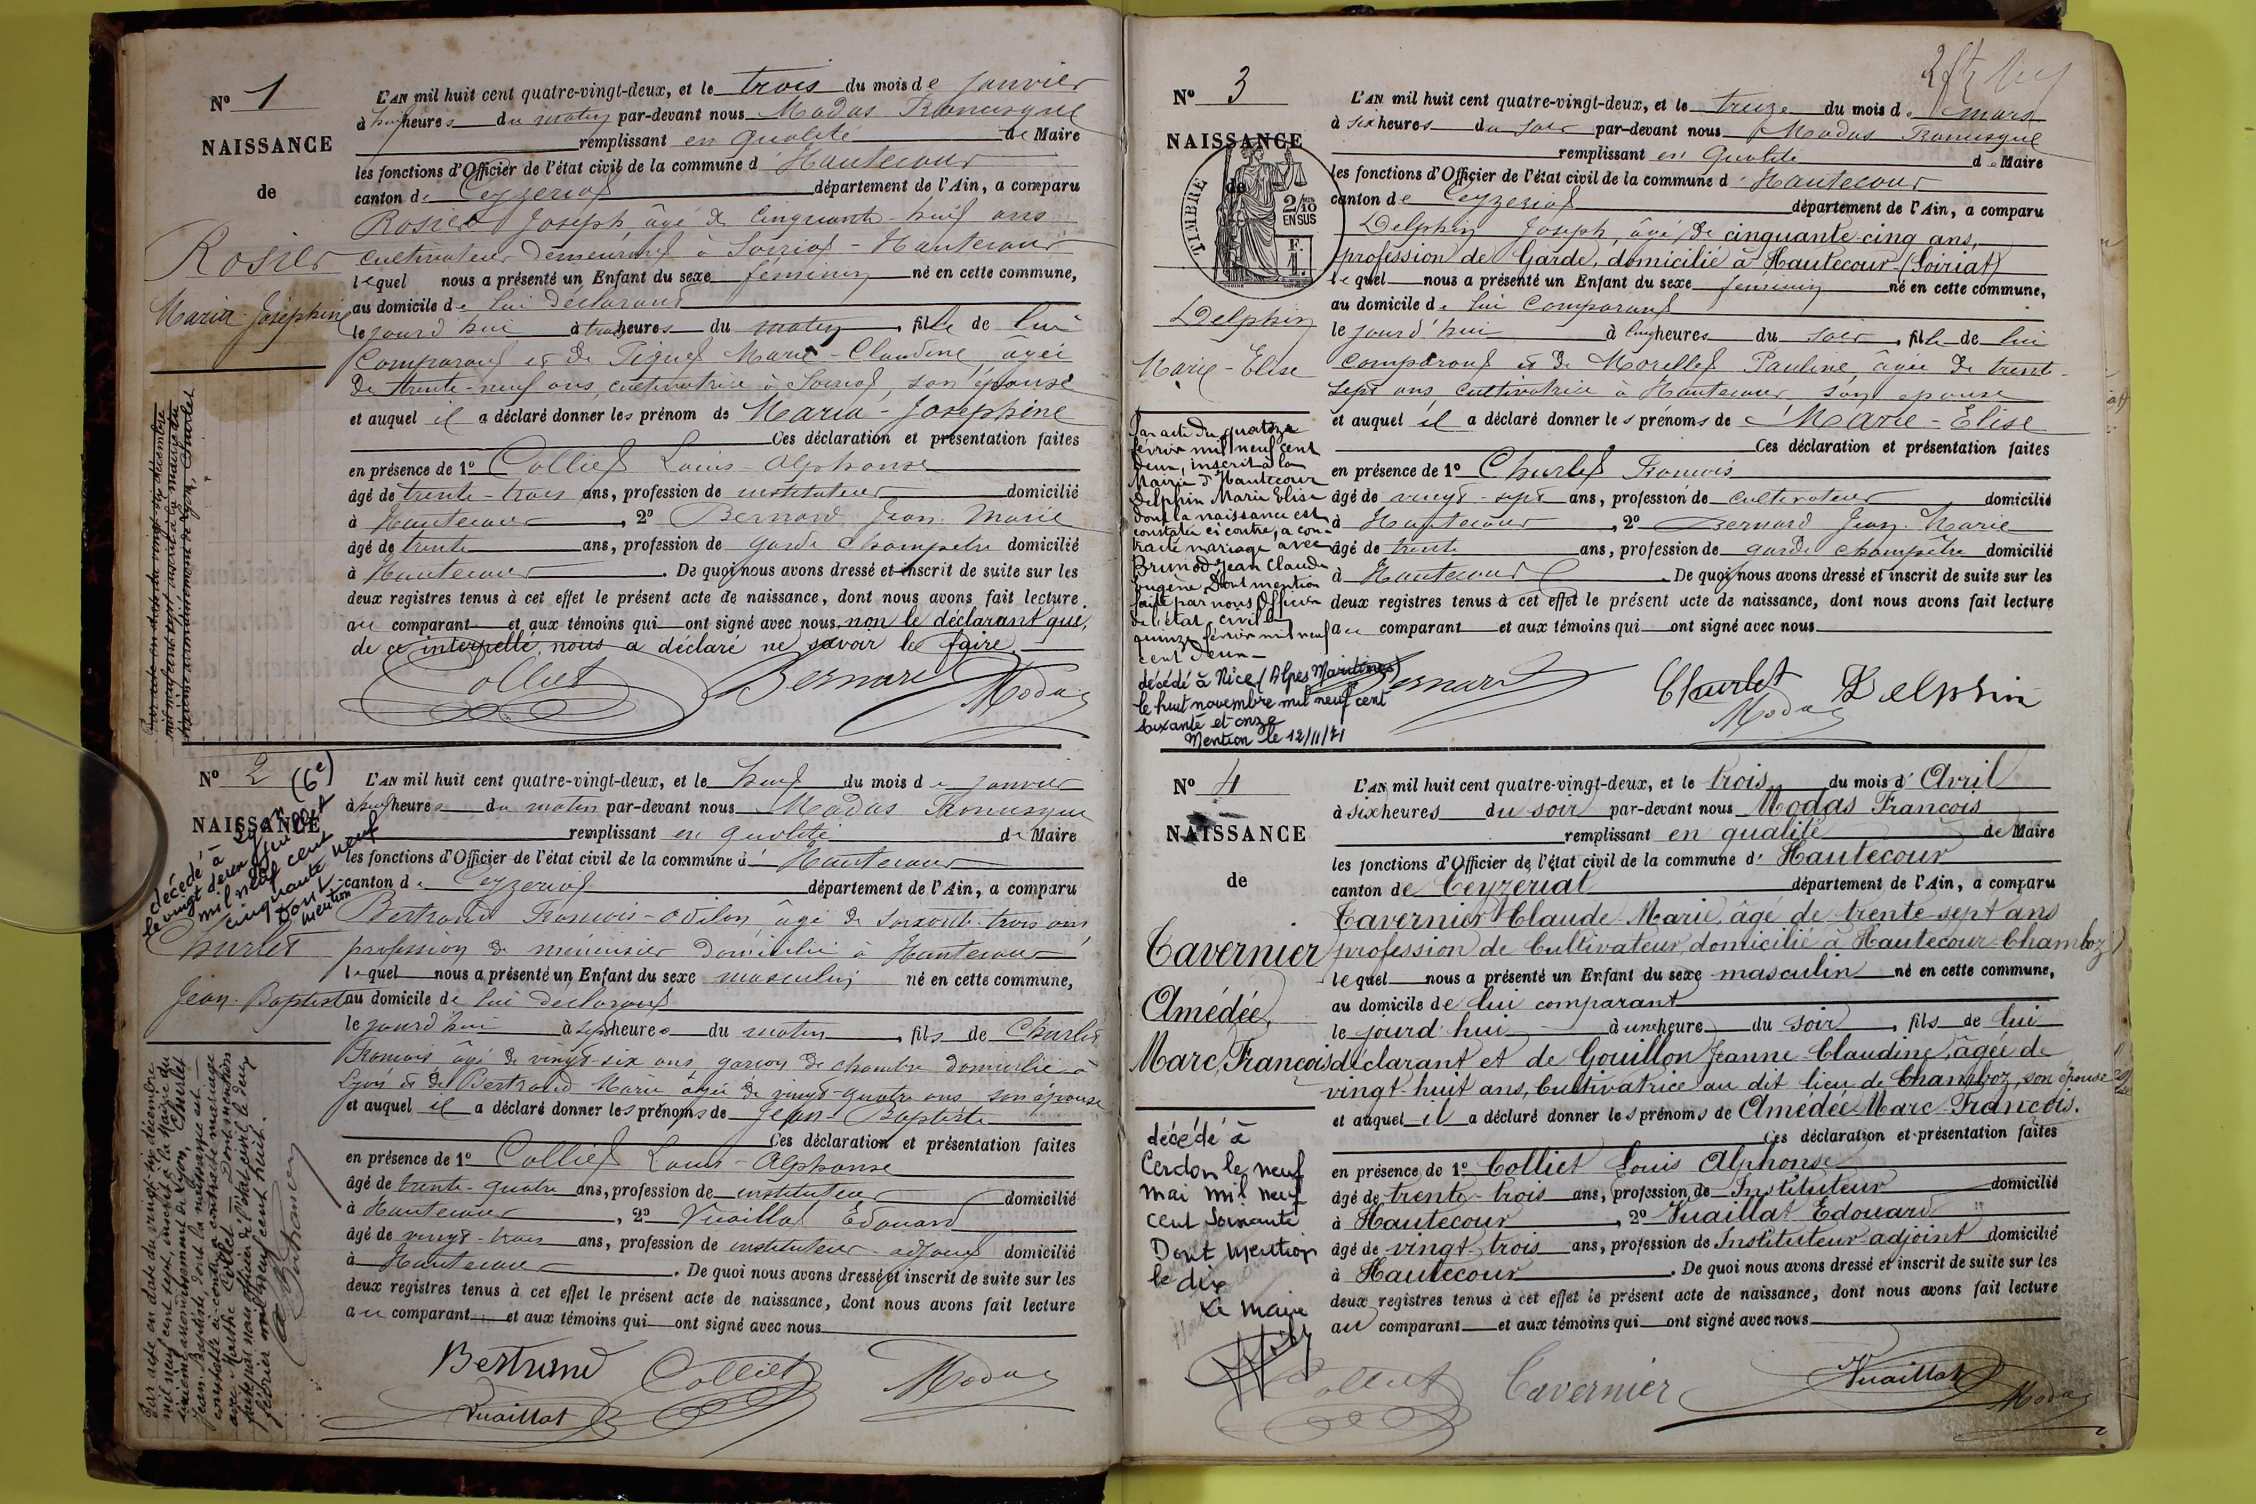 N° 1
NAISSANCE
de
Rosier
Maria-Joséphine
L'AN mil huit cent quatre-vingt-deux, et le trois du mois de janvier
à huit heures du matin par-devant nous Modas Francisque
remplissant en qualité de Maire
les fonctions d'Officier de l'état civil de la commune d'Hautecour
canton de Ceyzeriat département de l'Ain, a comparu
Rosier Joseph, âgé de cinquante-huit ans
cultivateur demeurant à Soiriat-Hautecour
lequel nous a présenté un Enfant du sexe féminin né en cette commune,
au domicile de lui déclarant
le jourd'hui à trois heures du matin, fille de lui
comparant et de Marie-Claudine, âgée
de trente-neuf ans, cultivatrice à Soiriat, son épouse
et auquel il a déclaré donner les prénom de Maria-Joséphine
Ces déclaration et présentation faites
en présence de 1° Colliet Louis-Alphonse
âgé de trente-trois ans, profession de instituteur domicilié
à Hautecour, 2° Bernard Jean Marie
âgé de trente ans, profession de garde champêtre domicilié
à Hautecour. De quoi nous avons dressé et inscrit de suite sur les
deux registres tenus à cet effet le présent acte de naissance, dont nous avons fait lecture
au comparant et aux témoins qui ont signé avec nous, non le déclarant qui,
de ce interpellé, nous a déclaré ne savoir le faire.
Colliet Bernard Modas
N° 2
NAISSANCE
décédé à Lyon (6e)
le vingt deux juillet
mil neuf cent
cinquante neuf
Dont
mention
Churlet
Jean-Baptiste
Par acte en date du vingt-six décembre
mil neuf cent sept, inscrit à la Mairie du
sixième arrondissement de Lyon, Churlet
Jean-Baptiste, dont la naissance est
constatée ci-contre, a contracté mariage
avec Marthe Collet. Dont mention
faite par nous Officier de l'état civil le deux
février mil neuf cent huit.
L'AN mil huit cent quatre-vingt-deux, et le huit du mois de janvier
à huit heures du matin par-devant nous Modas Francisque
remplissant en qualité de Maire
les fonctions d'Officier de l'état civil de la commune d'Hautecour
canton de Ceyzeriat département de l'Ain, a comparu
Bertrand François-Odilon, âgé de soixante-trois ans
profession de menuisier domicilié à Hautecour
lequel nous a présenté un Enfant du sexe masculin né en cette commune,
au domicile de lui déclarant
le jourd'hui à sept heures du matin, fils de Churlet
François âgé de vingt-six ans garçon de chambre domicilié à
Lyon et de Bertrand Marie âgée de vingt-quatre ans son épouse
et auquel il a déclaré donner les prénoms de Jean Baptiste
Ces déclaration et présentation faites
en présence de 1° Colliet Louis-Alphonse
âgé de trente-quatre ans, profession de instituteur domicilié
à Hautecour, 2° Vuaillat Edouard
âgé de vingt-trois ans, profession de instituteur-adjoint domicilié
à Hautecour. De quoi nous avons dressé et inscrit de suite sur les
deux registres tenus à cet effet le présent acte de naissance, dont nous avons fait lecture
au comparant et aux témoins qui ont signé avec nous
Bertrand Colliet Modas
Vuaillat
N° 3
NAISSANCE
de
TIMBRE
2/10
EN SUS
F.
1.
Delphin
Marie-Elise
Par acte du quatorze
février mil neuf cent
deux, inscrit à la
Mairie d'Hautecour
Delphin Marie Elise
dont la naissance est
constatée ci contre, a con-
tracté mariage avec
Brunod Jean Claude
Eugène. Dont mention
faite par nous Officier
de l'état civil le
quinze février mil neuf
cent deux
décédé à Nice (Alpes Maritimes)
le huit novembre mil neuf cent
soixante et onze
Mention le 12/11/71
L'AN mil huit cent quatre-vingt-deux, et le treize du mois de mars
à six heures du soir par-devant nous Modas Francisque
remplissant en qualité de Maire
les fonctions d'Officier de l'état civil de la commune d'Hautecour
canton de Ceyzeriat département de l'Ain, a comparu
Delphin Joseph, âgé de cinquante-cinq ans,
profession de Garde, domicilié à Hautecour (Soiriat)
lequel nous a présenté un Enfant du sexe féminin né en cette commune,
au domicile de lui comparant
le jourd'hui à cinq heures du soir, fille de lui
comparant et de Morellet Pauline, âgée de trente-
sept ans, cultivatrice à Hautecour, son épouse
et auquel il a déclaré donner les prénoms de Marie-Elise
Ces déclaration et présentation faites
en présence de 1° Churlet François
âgé de vingt-sept ans, profession de cultivateur domicilié
à Hautecour, 2° Bernard Jean-Marie
âgé de trente ans, profession de garde champêtre domicilié
à Hautecour. De quoi nous avons dressé et inscrit de suite sur les
deux registres tenus à cet effet le présent acte de naissance, dont nous avons fait lecture
au comparant et aux témoins qui ont signé avec nous
Bernard Churlet Delphin
Modas
N° 4
NAISSANCE
de
Tavernier
Amédée,
Marc, François
décédé à
Cerdon le neuf
mai mil neuf
cent soixante
Dont mention
le dix
Le Maire
L'AN mil huit cent quatre-vingt-deux, et le trois du mois d'Avril
à six heures du soir par-devant nous Modas François
remplissant en qualité de Maire
les fonctions d'Officier de l'état civil de la commune d'Hautecour
canton de Ceyzériat département de l'Ain, a comparu
Tavernier Claude Marie, âgé de trente-sept ans
profession de Cultivateur, domicilié à Hautecour-Chamboz
lequel nous a présenté un Enfant du sexe masculin né en cette commune,
au domicile de lui comparant
le jourd'hui à une heure du soir, fils de lui
déclarant et de Gouillon Jeanne-Claudine, âgée de
vingt-huit ans, Cultivatrice au dit lieu de Chamboz, son épouse
et auquel il a déclaré donner les prénoms de Amédée-Marc-François.
Ces déclaration et présentation faites
en présence de 1° Colliet Louis Alphonse
âgé de trente-trois ans, profession de Instituteur domicilié
à Hautecour, 2° Vuaillat Edouard
âgé de vingt-trois ans, profession de Instituteur-adjoint domicilié
à Hautecour. De quoi nous avons dressé et inscrit de suite sur les
deux registres tenus à cet effet le présent acte de naissance, dont nous avons fait lecture
au comparant et aux témoins qui ont signé avec nous
Colliet Tavernier Vuaillat Modas